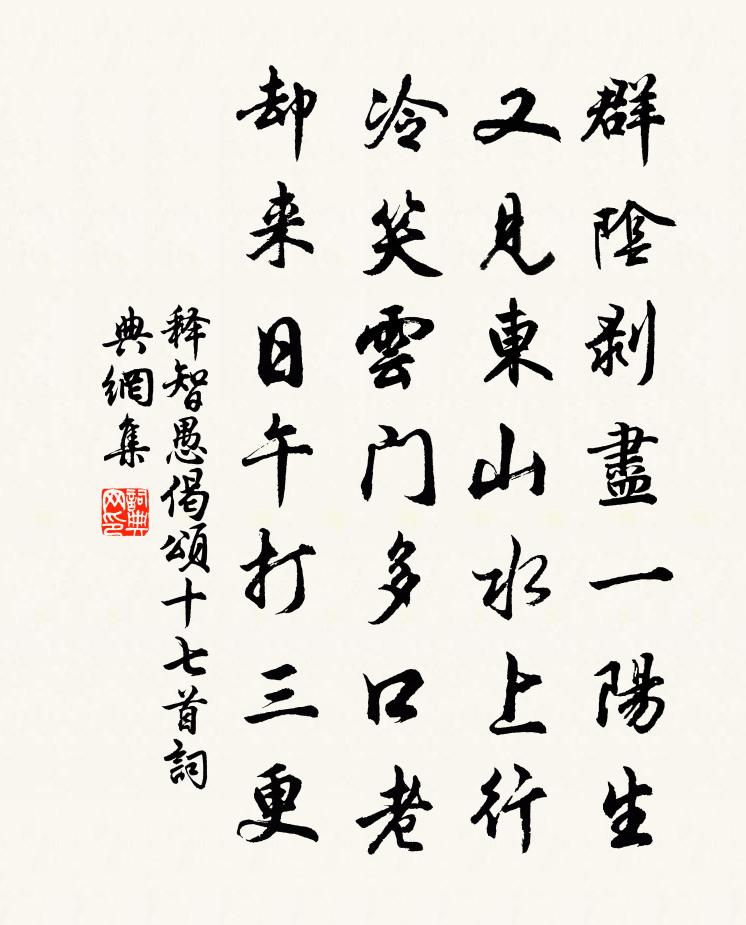 群陰剥盡一陽生
又見東山水上行
冷笑雲門多口老
却来日午打三更
释智愚偈頌十七首詞
典網集
詞典网印